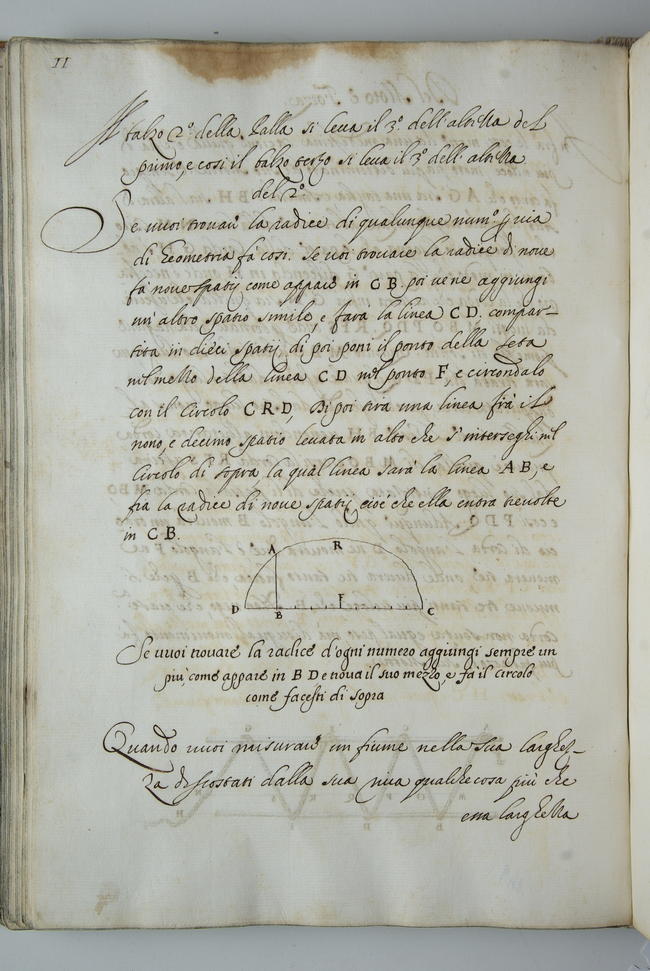 11
Il balzo 2º. della Palla si leva il 3º. dell'altezza del
primo, e cosi il balzo terzo si leva il 3º. dell'altezza
del 2º.
Se vuoi trovare la radice di qualunque num.º p via
di Geometria fà cosi. Se voi trovare la radice di nove
fà nove spatij come appare in CB. poi vene aggiungi
un'altro spatio simile, e farà la linea CD. compar-
tita in dieci spatij, di poi poni il ponto della sesta
nel mezzo della linea CD nel ponto F, e circondalo
con il circolo CRD, Di poi tira una linea frà il
nono, e decimo spatio levata in alto che s'interseghi nel
circolo di sopra, la qual linea sarà la linea AB, e
fia la radice di nove spatij, cioè che ella entra tre volte
in CB.
A R
D B F C
Se vuoi trovare la radice d'ogni numero aggiungi sempre un
più, come appare in BD e trova il suo mezzo, e fà il circolo
come facesti di sopra
Quando vuoi misurare un fiume nella sua larghez-
za discostati dalla sua riva qualche cosa più che
essa larghezza